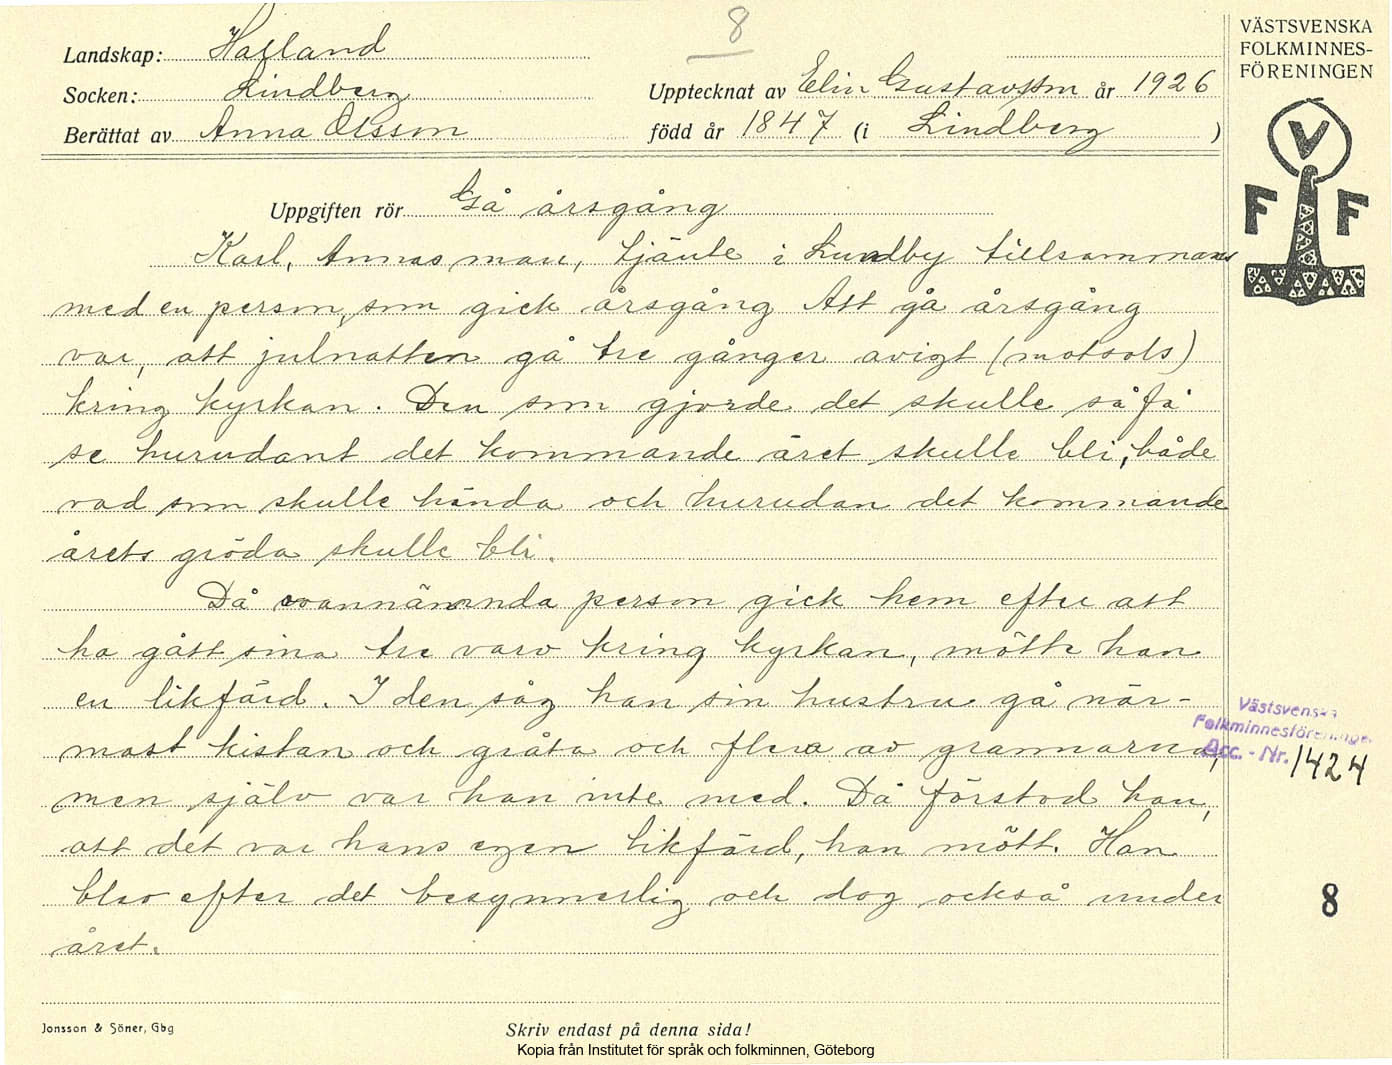 8
Landskap: Halland
Socken: Lindberg
Berättat av Anna Olsson
Upptecknat av Elin Gustavsson år 1926
född år 1847 (i Lindberg )
VÄSTSVENSKA
FOLKMINNES-
FÖRENINGEN
V
F F
Uppgiften rör Gå årsgång
Karl, Annas man, tjänte i Lundby tillsammans
med en person, som gick årsgång Att gå årsgång
var, att julnatten gå tre gånger avigt (motsols)
kring kyrkan. Den som gjorde det skulle så få
se hurudant det kommande året skulle bli, både
vad som skulle hända och hurudan det kommande
årets gröda skulle bli.
Då ovannämnda person gick hem efter att
ha gått sina tre varv kring kyrkan, mötte han
en likfärd. I den såg han sin hustru gå när-
mast kistan och gråta och flera av grannarna,
men själv var han inte med. Då förstod han,
att det var hans egen likfärd, han mött. Han
blev efter det besynnerlig och dog också under
året.
Västsvenska
Folkminnesföreninge
Acc. - Nr. 1424
8
Jonsson & Söner, Gbg
Skriv endast på denna sida!
Kopia från Institutet för språk och folkminnen, Göteborg